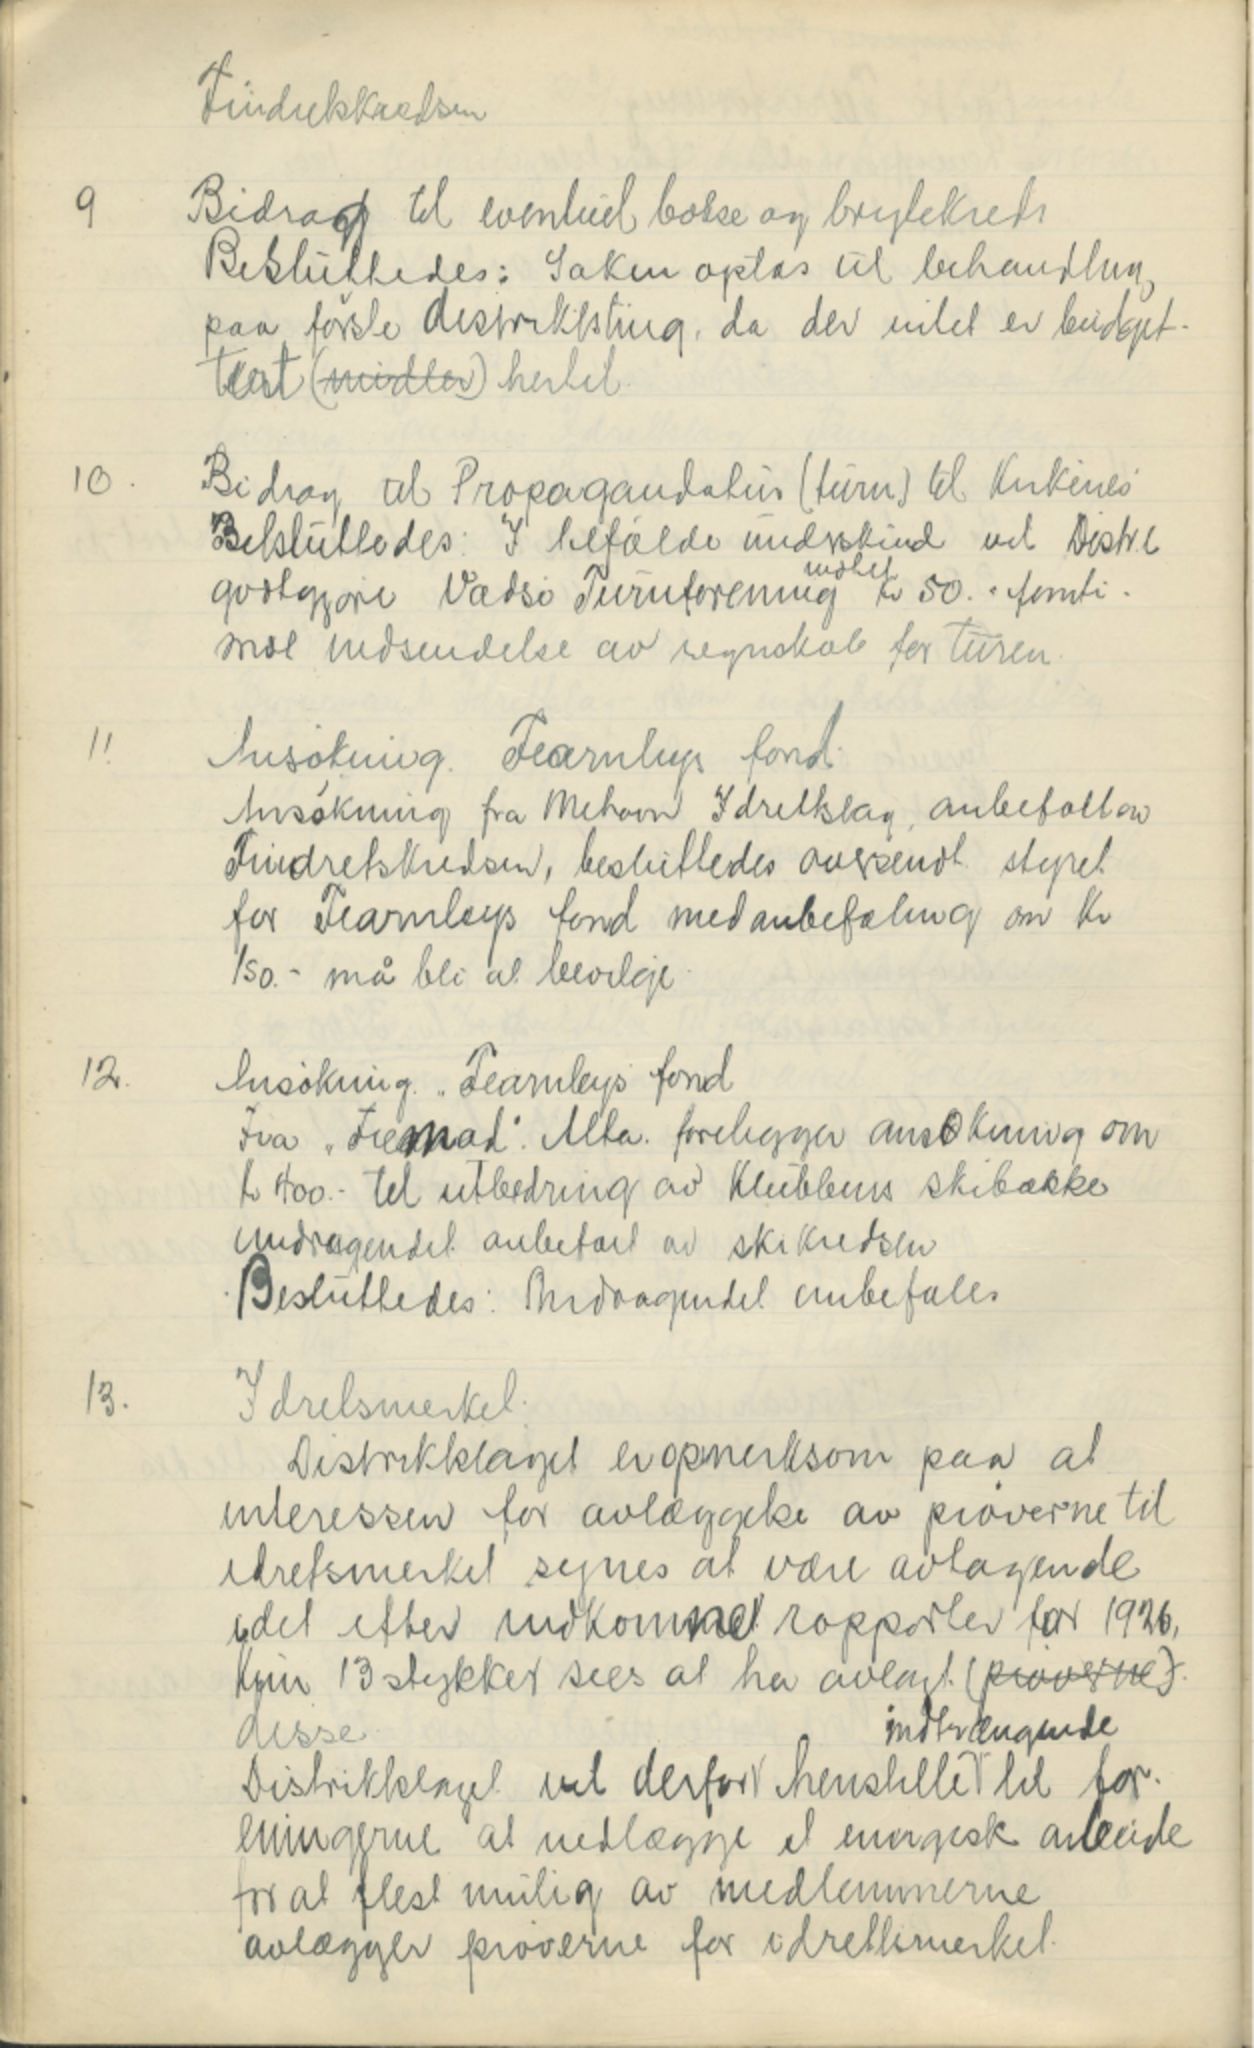 Friidretskredsen
9 Bidrag til eventuel bokse og brytekreds
Besluttedes: Saken optas til behandling
paa første distriktsting, da der intet er budget-
tert (midler) hertil.
10. Bidrag til Propagandatur (turn) til Kirkenes
Besluttedes: I tilfælde underskud vil Distr.l
godtgjøre Vadsø Turnforening indtil kr 50.- femti -
mot indsendelse av regnskab for turen.
11 Ansøkning. Fearnleys fond.
Ansøkning fra Mehavn Idretslag, anbefalt av
Friidretskredsen, besluttedes oversendt styret
for Fearnleys fond med anbefaling om kr
150.- må bli at bevilge.
12. Ansøkning. Fearnleys fond
Fra "Fremad". Alta. foreligger ansøkning om
kr 400.- til utbedring av klubbens skibakke
andragendet anbefalt av skikredsen
Besluttedes: Andragendet anbefales
13. Idretsmerket.
Distriktslaget er opmerksom paa at
interessen for avlæggelse av prøverne til
idretsmerket synes at være avtagende
idet efter indkomne rapporter for 1926,
kun 13 stykker sees at ha avlagt (prøverne).
disse.
Distriktslaget vil derfor indtrængende henstille til for-
eningerne at nedlægge et energisk arbeide
for at flest mulig av medlemmerne
avlægger prøverne for idretsmerket.